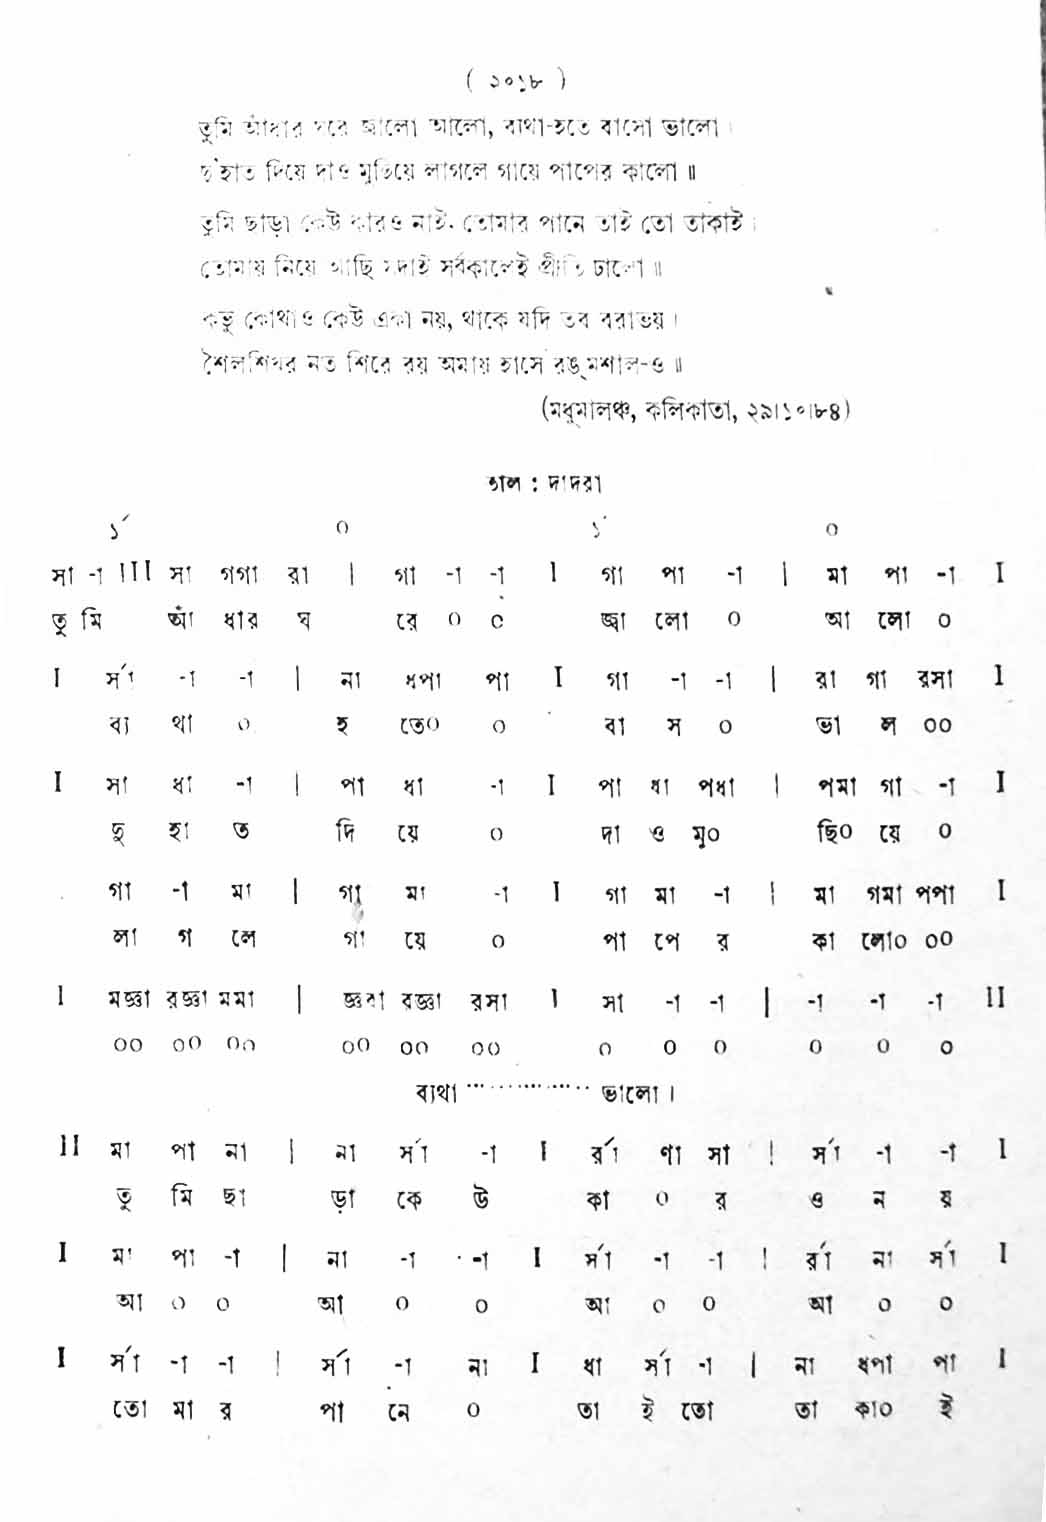 ( ২০১৮ )
তুমি আঁধার ঘরে জ্বালো আলো, ব্যথা-হতে বাসো ভালো।
দু'হাত দিয়ে দাও মুছিয়ে লাগলে গায়ে পাপের কালো॥
তুমি ছাড়া কেউ কারও নাই. তোমার পানে তাই তো তাকাই।
তোমায় নিয়ে আছি সদাই সর্বকালেই প্রীতি ঢালো॥
কভু কোথাও কেউ একা নয়, থাকে যদি তব বরাভয়।
শৈলশিখর নত শিরে রয় অমায় হাসে রঙ্মশাল-ও॥
(মধুমালঞ্চ, কলিকাতা, ২৯।১০।৮৪)
তাল : দাদরা
১´ ০ ১´ ০
সা -া III সা গগা রা | গা -া -া I গা পা -া | মা পা -া I
তু মি আঁ ধার ঘ রে ০ ০ জ্বা লো ০ আ লো ০
I র্সা -া -া | না ধপা পা I গা -া -া | রা গা রসা I
ব্য থা ০ হ তে০ ০ বা স ০ ভা ল ০০
I সা ধা -া | পা ধা -া I পা ধা পধা | পমা গা -া I
দু হা ত দি য়ে ০ দা ও মু০ ছি০ য়ে ০
গা -া মা | গা মা -া I গা মা -া | মা গমা পপা I
লা গ লে গা য়ে ০ পা পে র কা লো০ ০০
I মজ্ঞা রজ্ঞা মমা | জ্ঞরা রজ্ঞা রসা I সা -া -া | -া -া -া II
০০ ০০ ০০ ০০ ০০ ০০ ০ ০ ০ ০ ০ ০
ব্যথা ·················· ভালো।
II মা পা না | না র্সা -া I র্রা ণা সা | র্সা -া -া I
তু মি ছা ড়া কে উ কা ০ র ও ন য়
I মা পা -া | না -া -া I র্সা -া -া | র্রা না র্সা I
আ ০ ০ আ ০ ০ আ ০ ০ আ ০ ০
I র্সা -া -া | র্সা -া না I ধা র্সা -া | না ধপা পা I
তো মা র পা নে ০ তা ই তো তা কা০ ই